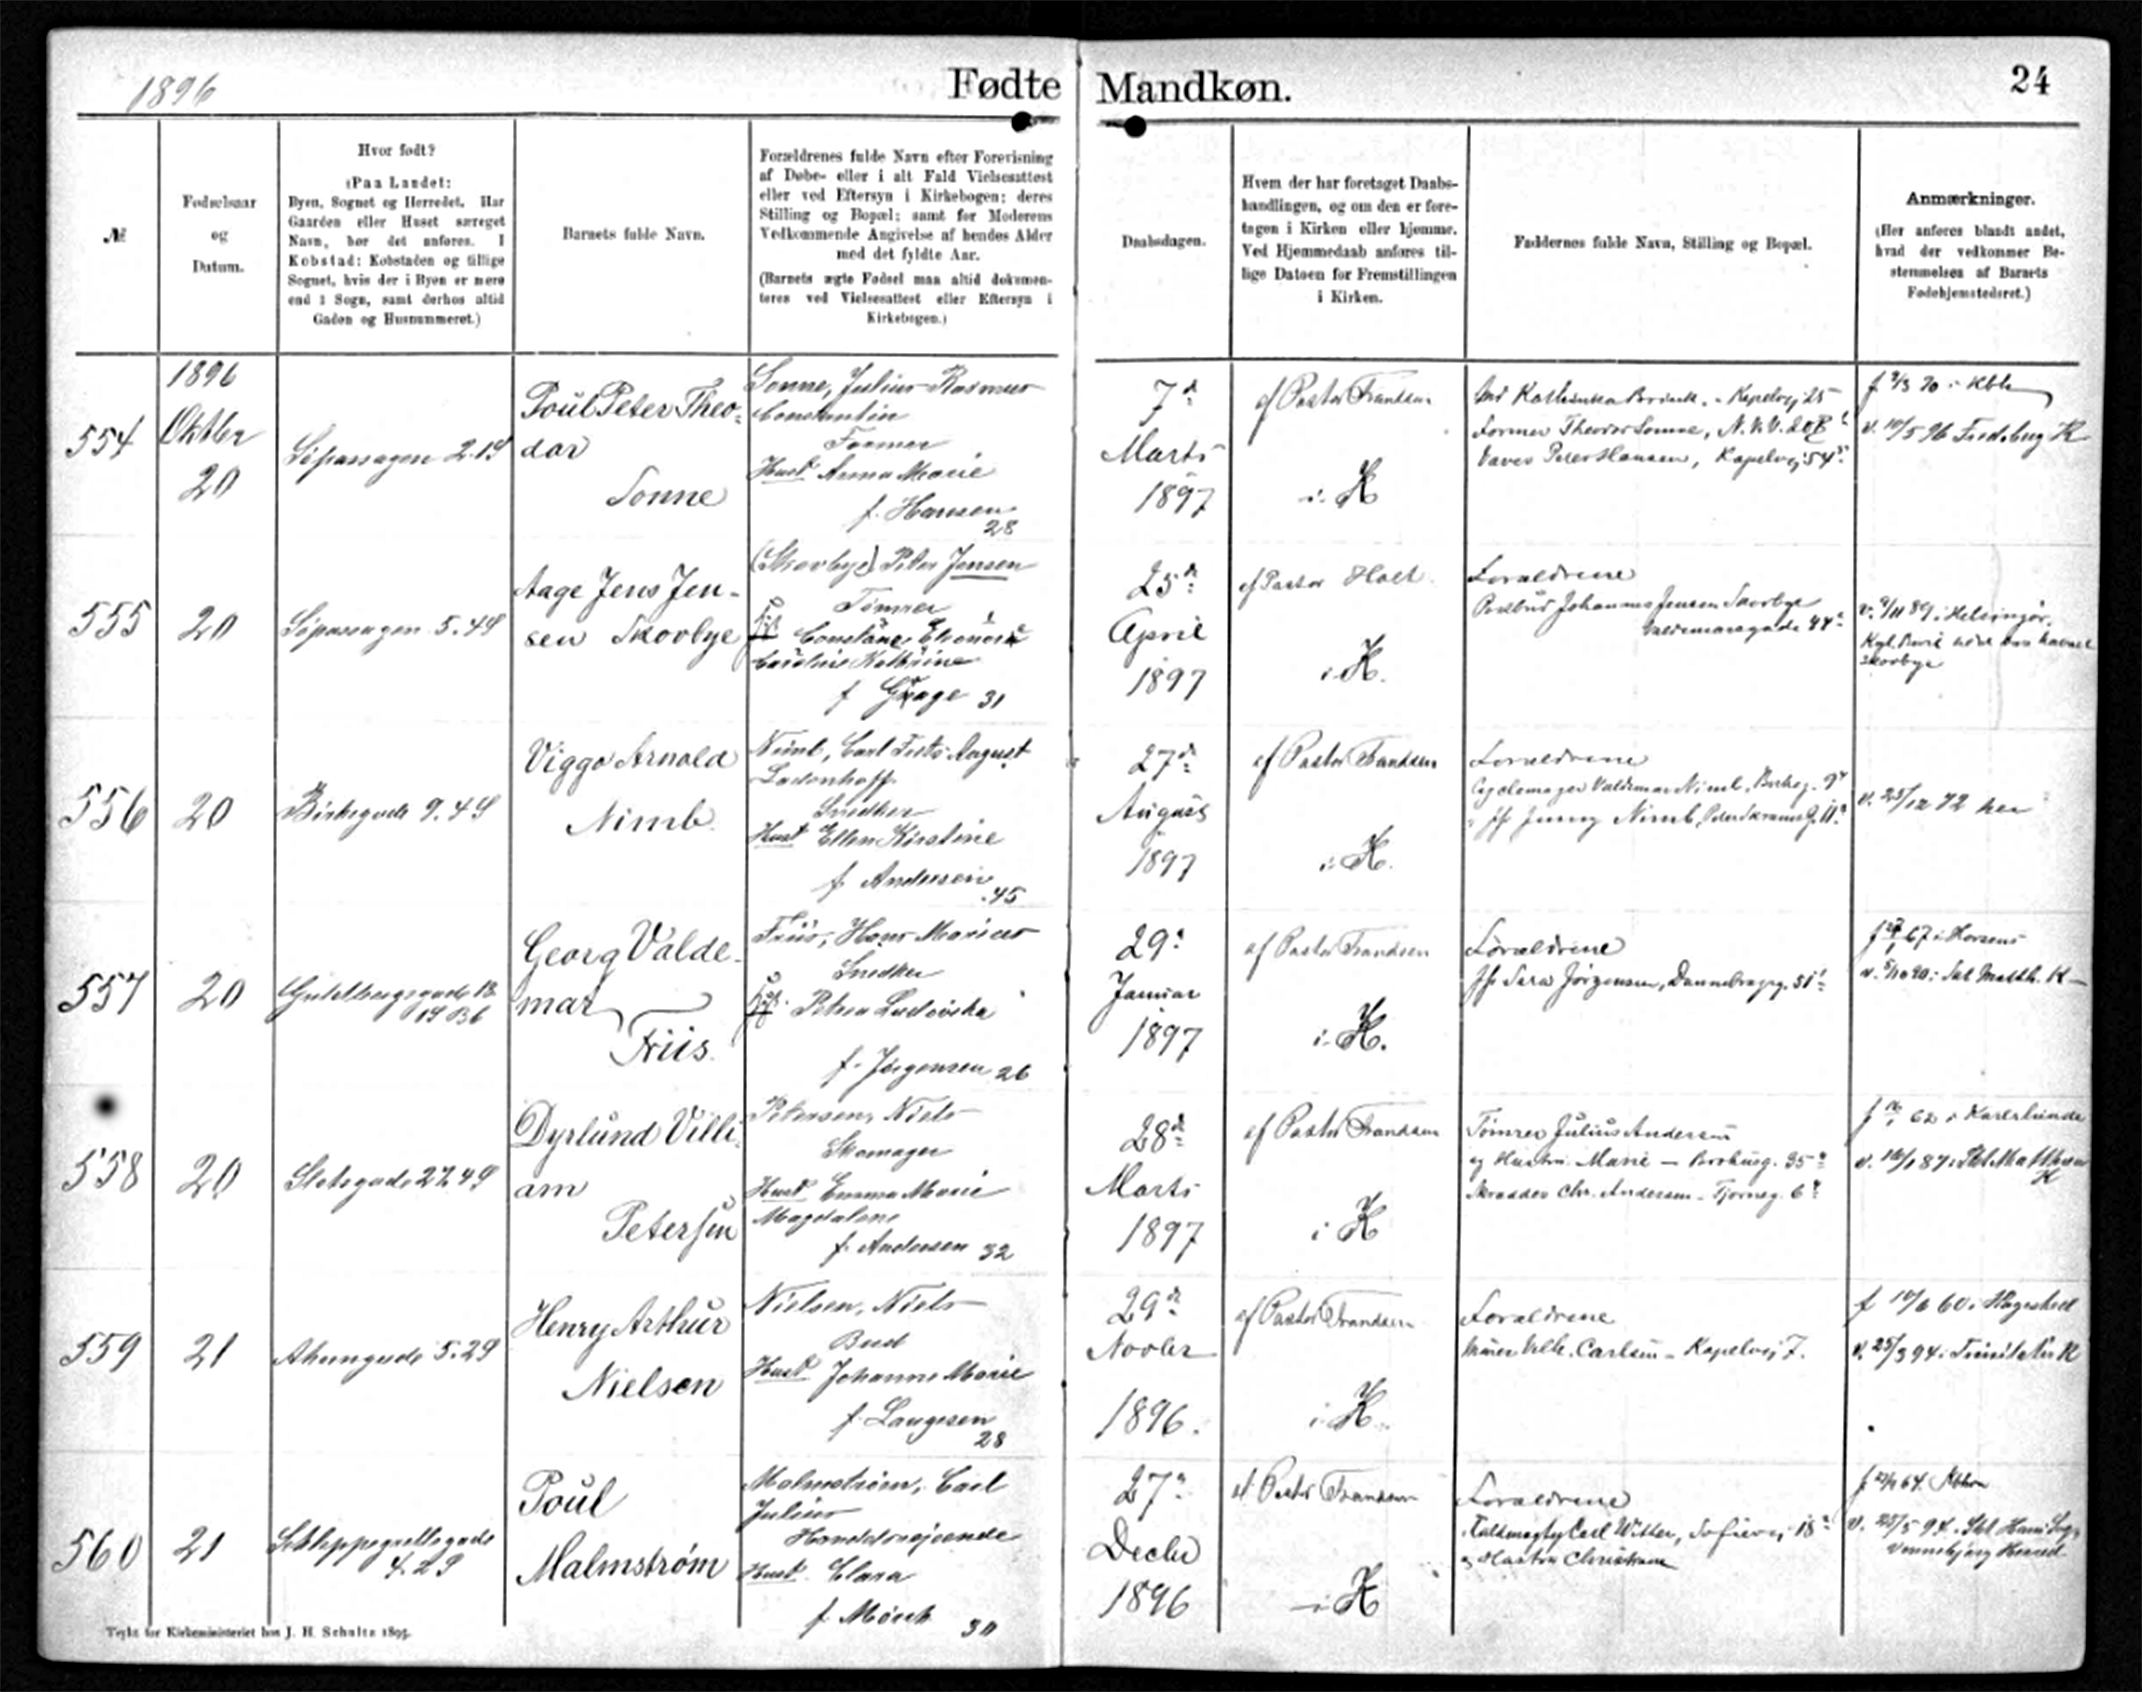 1896
Fødte
Mandkøn.
24
№
Fødselsaar
og
Datum.
Hvor født?
(Paa Landet:
Byen, Sognet og Herredet. Har
Gaarden eller Huset særeget
Navn, bør det anføres. I
Købstad: Købstaden og tillige
Sognet, hvis der i Byen er mere
end 1 Sogn, samt derhos altid
Gaden og Husnummeret.)
Barnets fulde Navn.
Forældrenes fulde Navn efter Forevisning
af Døbe- eller i alt Fald Vielsesattest
eller ved Eftersyn i Kirkebogen; deres
Stilling og Bopæl; samt for Moderens
Vedkommende Angivelse af hendes Alder
med det fyldte Aar.
(Barnets ægte Fødsel maa altid dokumen-
teres ved Vielsesattest eller Eftersyn i
Kirkebogen.)
Daabsdagen.
Hvem der har foretaget Daabs-
handlingen, og om den er fore-
tagen i Kirken eller hjemme.
Ved Hjemmedaab anføres til-
lige Datoen for Fremstillingen
i Kirken.
Faddernes fulde Navn, Stilling og Bopæl.
Anmærkninger.
(Her anføres blandt andet,
hvad der vedkommer Be-
stemmelsen af Barnets
Fødehjemstedsret.)
554
1896
Oktber
20
Søpassagen 2.1S
Poul Peter Theo-
dor
Sonne
Sonne, Julius Rasmus
Constantin
Former
Hust Anna Marie
f. Hansen
28
7d
Marts
1897
af Pastor Frandsen
i. K
Kapelvej 25
Former Theodor Sonne, N.
Peter Hansen, Kapelvej 54
f 2/3 70 i Kbh
v. 10/5 96 Fredsberg K
555
20
Søpassagen 5.4S
Aage Jens Jen-
sen Skovbye
(Skovbye) Peter Jensen
Tømrer
Constance Eleonora
Caroline Kathrine
f Grage 31
25d
April
1897
af Pastor Holt
i K.
Forældrene
Postbud Johannes Jensen Skovbye
Valdemarsgade 44
v. 9/11 89 i Helsingør.
Skovbye
556
20
Birkegade 9.4S
Viggo Arnold
Nimb.
Nimb, Carl Frits August
Ladenhoff
Snedker
Hust Ellen Kirstine
f. Andersen
45
27d
August
1897
af Pastor Frandsen
i K.
Forældrene
Cyclemager Valdemar Nimb, Birkeg. 9
Jfr Jenny Nimb, Peder Skramsg. 11
v. 25/12 72 her
557
20
Guldbergsgade 18
1S B6
Georg Valde-
mar
Friis.
Friis, Hans Marius
Snedker
Petrea Ludovika
f. Jørgensen 26
29
Januar
1897
af Pastor Frandsen
i. K.
Forældrene
Jfr Sara Jørgensen, Dannebrogsg. 31
67 i Horsens
v. 5/10 90 i Skt Matth. K
558
20
Slotsgade 27.4S
Dyrlund Villi-
am
Petersen
Petersen, Niels
Skomager
Hust Emma Marie
Magdalene
f. Andersen 32
28d
Marts
1897
af Pastor Frandsen
i K
Tømrer Julius Andersen
og Hustru Marie - Brohusg. 35
Skrædder Chr. Andersen - Tjørneg. 6
62 i Karlslunde
87 i Skt Matthæus
K
559
21
Ahorngade 5.2S
Henry Arthur
Nielsen
Nielsen, Niels
Bud
Hust Johanne Marie
f. Laugesen
28
29d
Novbr
1896.
af Pastor Frandsen
i K.
Forældrene
Murer Vilh. Carlsen - Kapelvej 7.
60 i Hagested
v. 25/3 94 i Trinitatis K
560
21
Schleppegrellsgade
4.2S
Poul
Malmstrøm
Malmstrøm, Carl
Julius
Handelsrejsende
Hust. Clara
f. Mørch
30
27
Decbr
1896
af Pastor Frandsen
i K
Forældrene
Fuldmægtig Carl Witter, Sofievej 18
og Hustru Christiane
64 Kbhvn
v. 25/5 94. Skt Hans Sogn
Vennebjerg Herred
Trykt for Kirkeministeriet hos J. H. Schultz 1895.